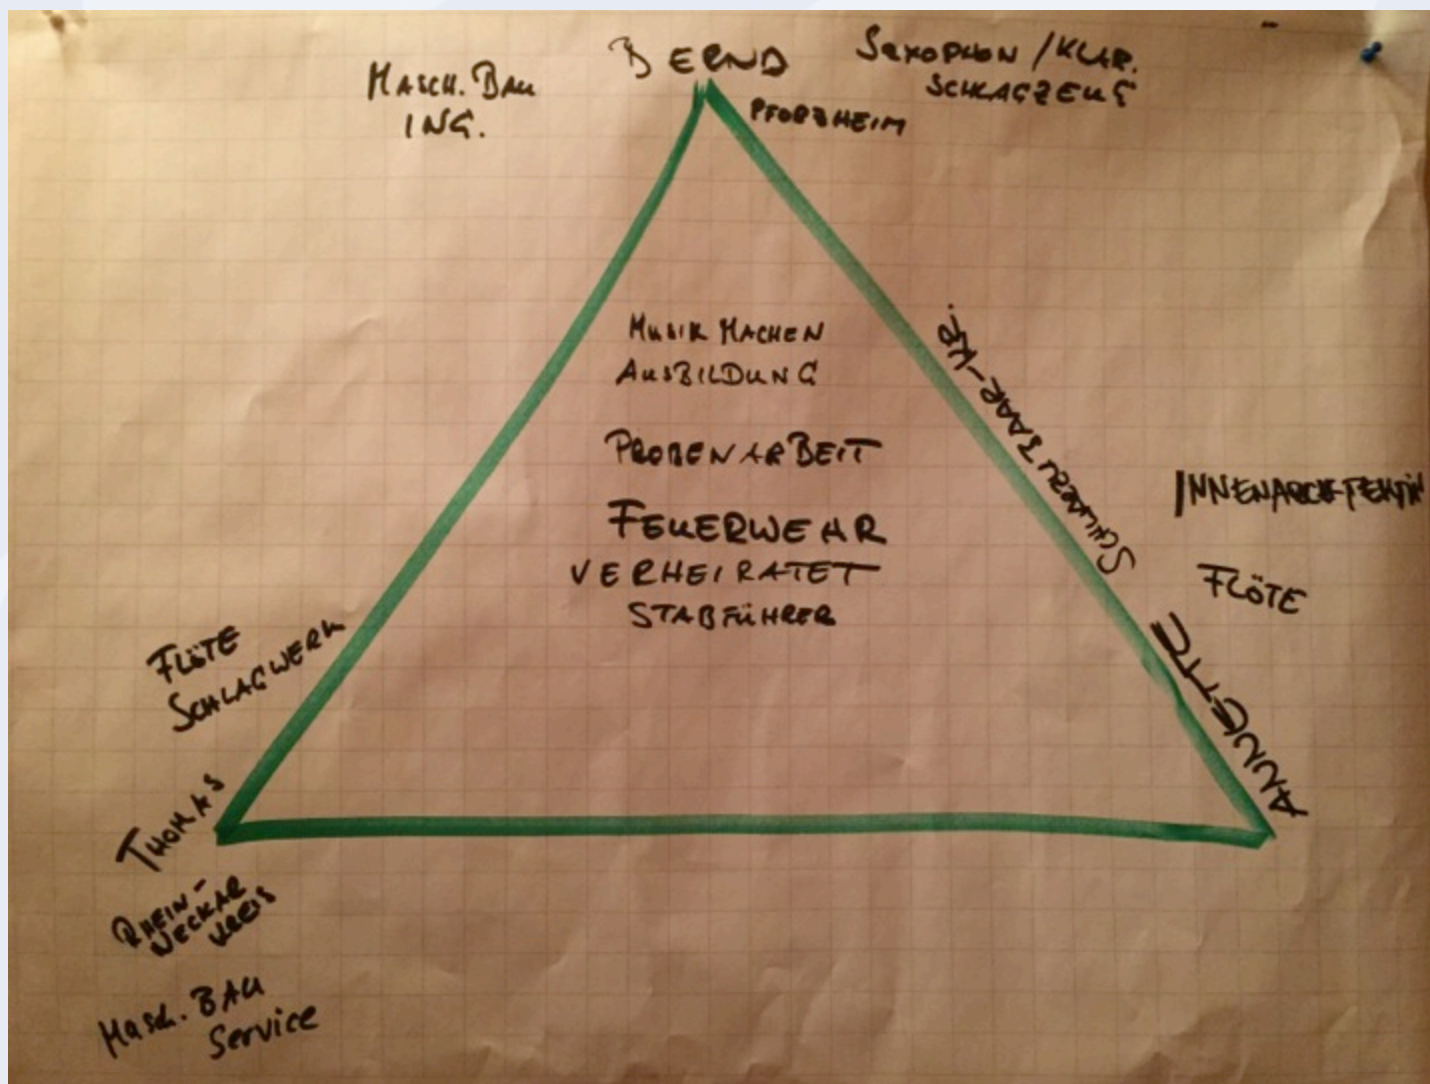 BERND
MASCH. BAU
ING.
SAXOPHON / KLAR.
SCHLAGZEUG
PFORZHEIM
MUSIK MACHEN
AUSBILDUNG
PROBENARBEIT
FEUERWEHR
VERHEIRATET
STABFÜHRER
SCHWARZW. BAAR-KR.
INNENARCHITEKTIN
FLÖTE
ANNETTE
FLÖTE
SCHLAGWERK
THOMAS
RHEIN-
NECKAR
KREIS
Masch. BAU
Service